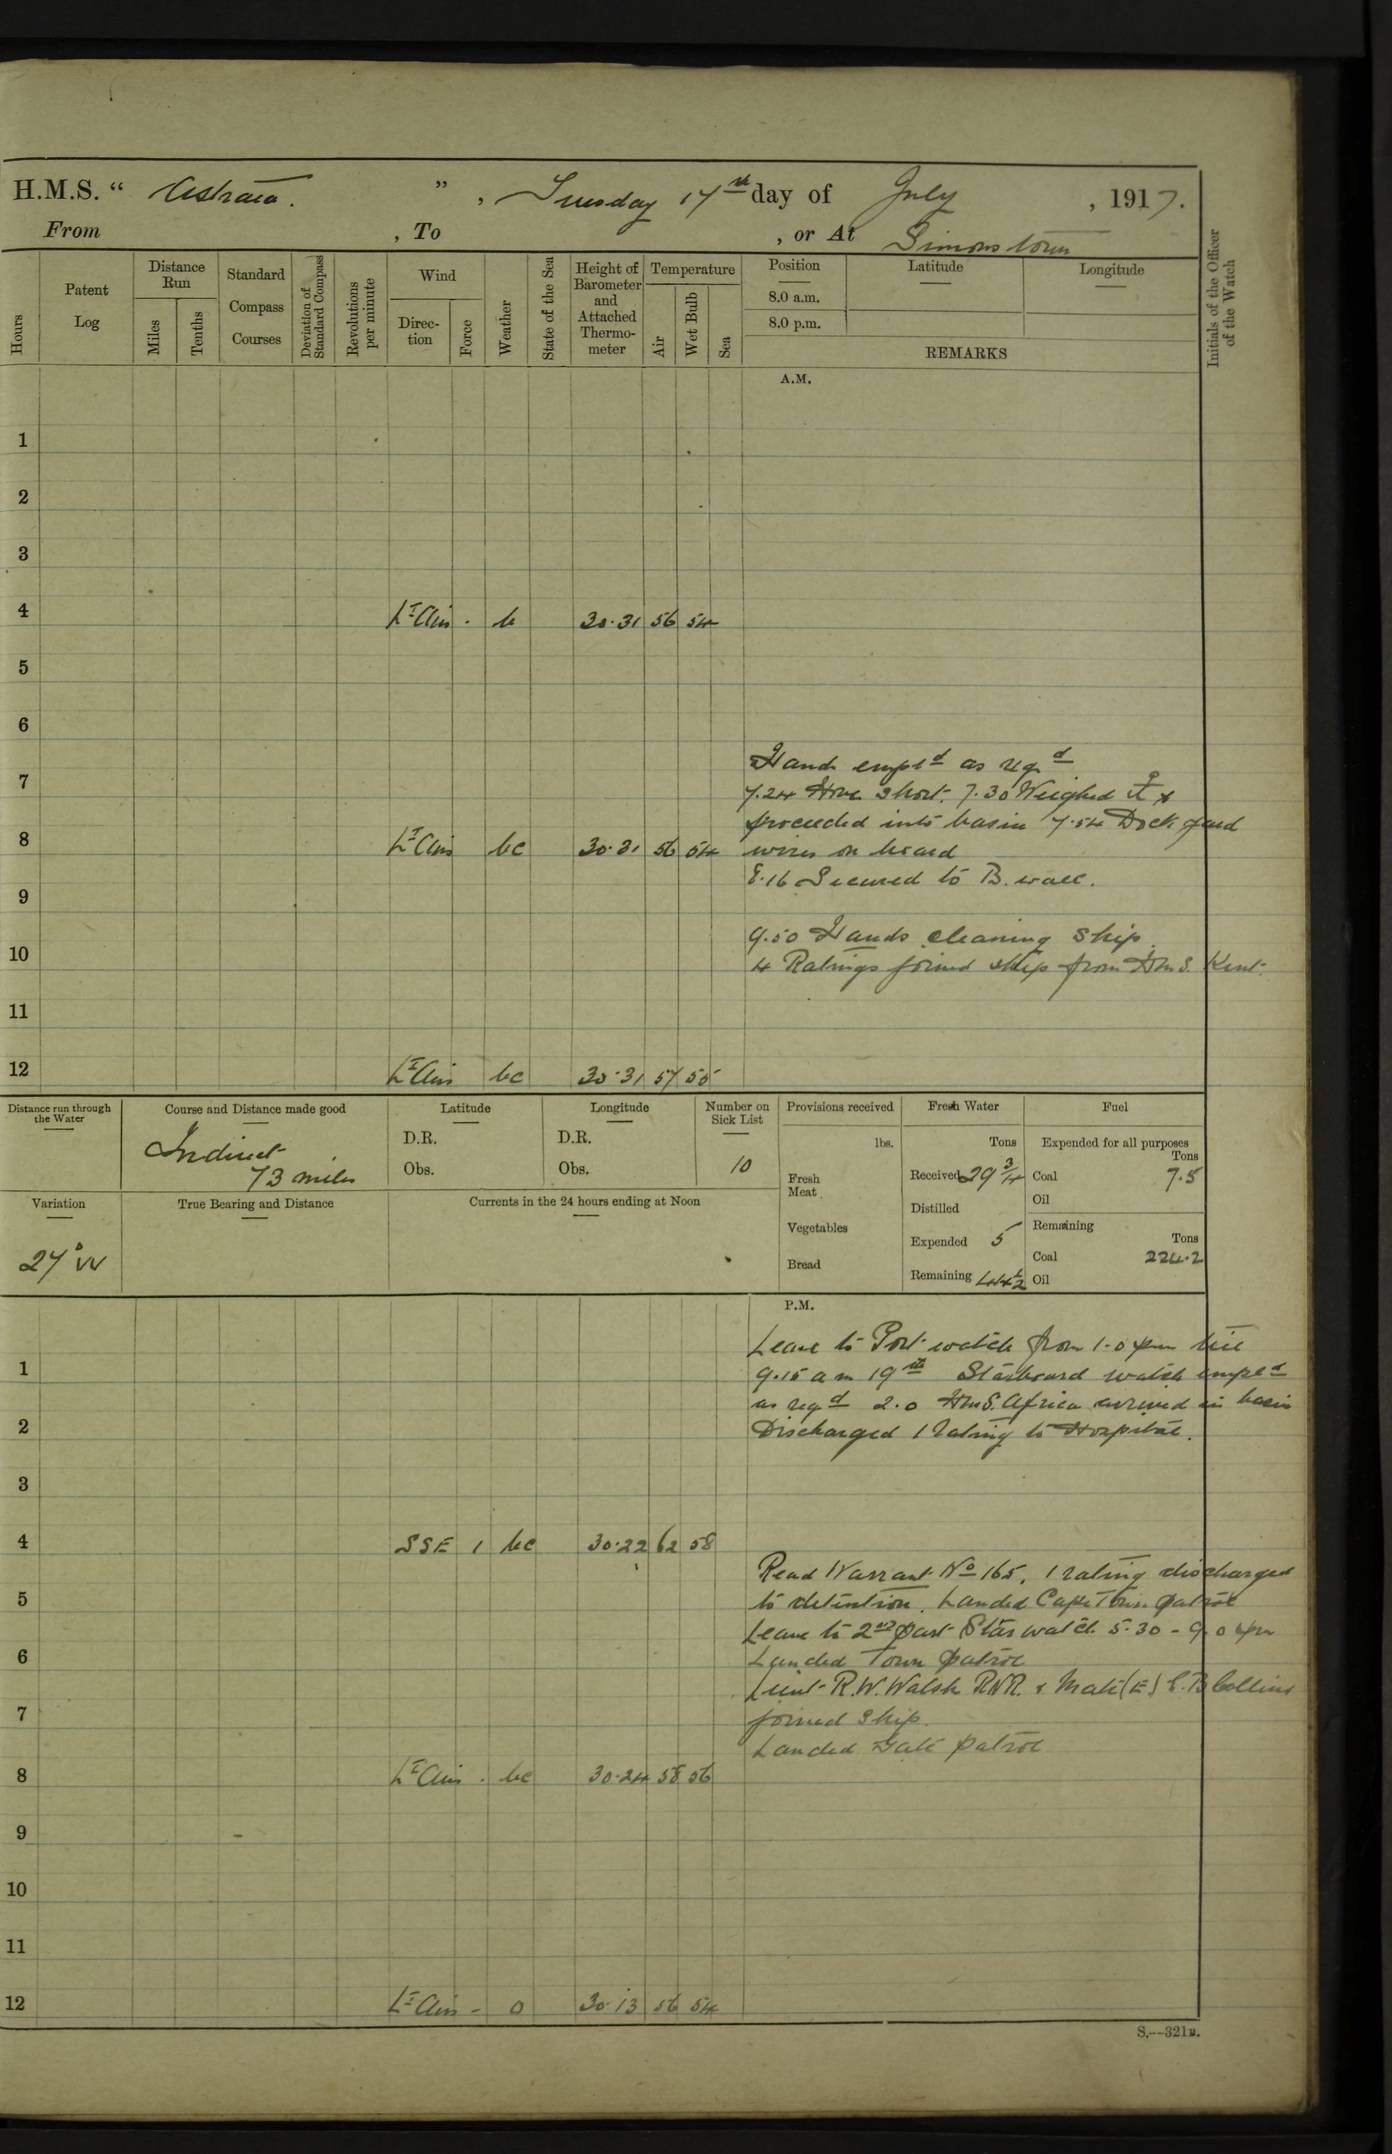 H.M.S. “ Astraea. ” , Tuesday 17th day of July , 1917.
From , To , or At Simonstown
Hours
Patent Log
Distance Run
Miles
Tenths
Standard Compass Courses
Deviation of Standard Compass
Revolutions per minute
Wind
Direction
Force
Weather
State of the Sea
Height of Barometer and Attached Thermometer
Temperature
Air
Wet Bulb
Sea
Position
8.0 a.m.
8.0 p.m.
Latitude
Longitude
REMARKS
Initials of the Officer of the Watch
A.M.
1
2
3
4 Lt Airs . b 30.31 56 54
5
6
Hands empld as reqd
7
7.24 Hove short. 7.30 Weighed &
proceeded into basin 7.54 Dockyard
8 Lt Airs bc 30.31 56 54 wires on board
8.16 Secured to B. wall.
9
9.50 Hands cleaning ship.
10
4 Ratings joined ship from HMS. Kent.
11
12 Lt Airs bc 30.31 57 55
Distance run through the Water
Course and Distance made good
Indirect
73 miles
Latitude
D.R.
Obs.
Longitude
D.R.
Obs.
Number on Sick List
10
Provisions received
lbs.
Fresh Meat
Vegetables
Bread
Fresh Water
Tons
Received 29 3/4
Distilled
Expended 5
Remaining 144 1/2
Fuel
Expended for all purposes
Tons
Coal 7.5
Oil
Remaining
Tons
Coal 224.2
Oil
Variation
27° W
True Bearing and Distance
Currents in the 24 hours ending at Noon
P.M.
Leave to Port watch from 1.0 pm till
1
9.15 am 19th Starboard watch empld
as reqd 2.0 HMS. Africa arrived in basin
2
Discharged 1 rating to Hospital.
3
4 SSE 1 bc 30.22 62 58
Read Warrant No 165. 1 rating discharged
5
to detention. Landed Cape Town patrol
Leave to 2nd part Star watch 5.30 - 9.0 pm
6
Landed Town patrol
Lieut R.W. Walsh RNR. & Mate (E) E. B Collins
7
joined ship.
Landed Gate patrol
8 Lt Airs . bc 30.24 58 56
9
10
11
12 Lt Airs - o 30.13 56 54
S.—321B.